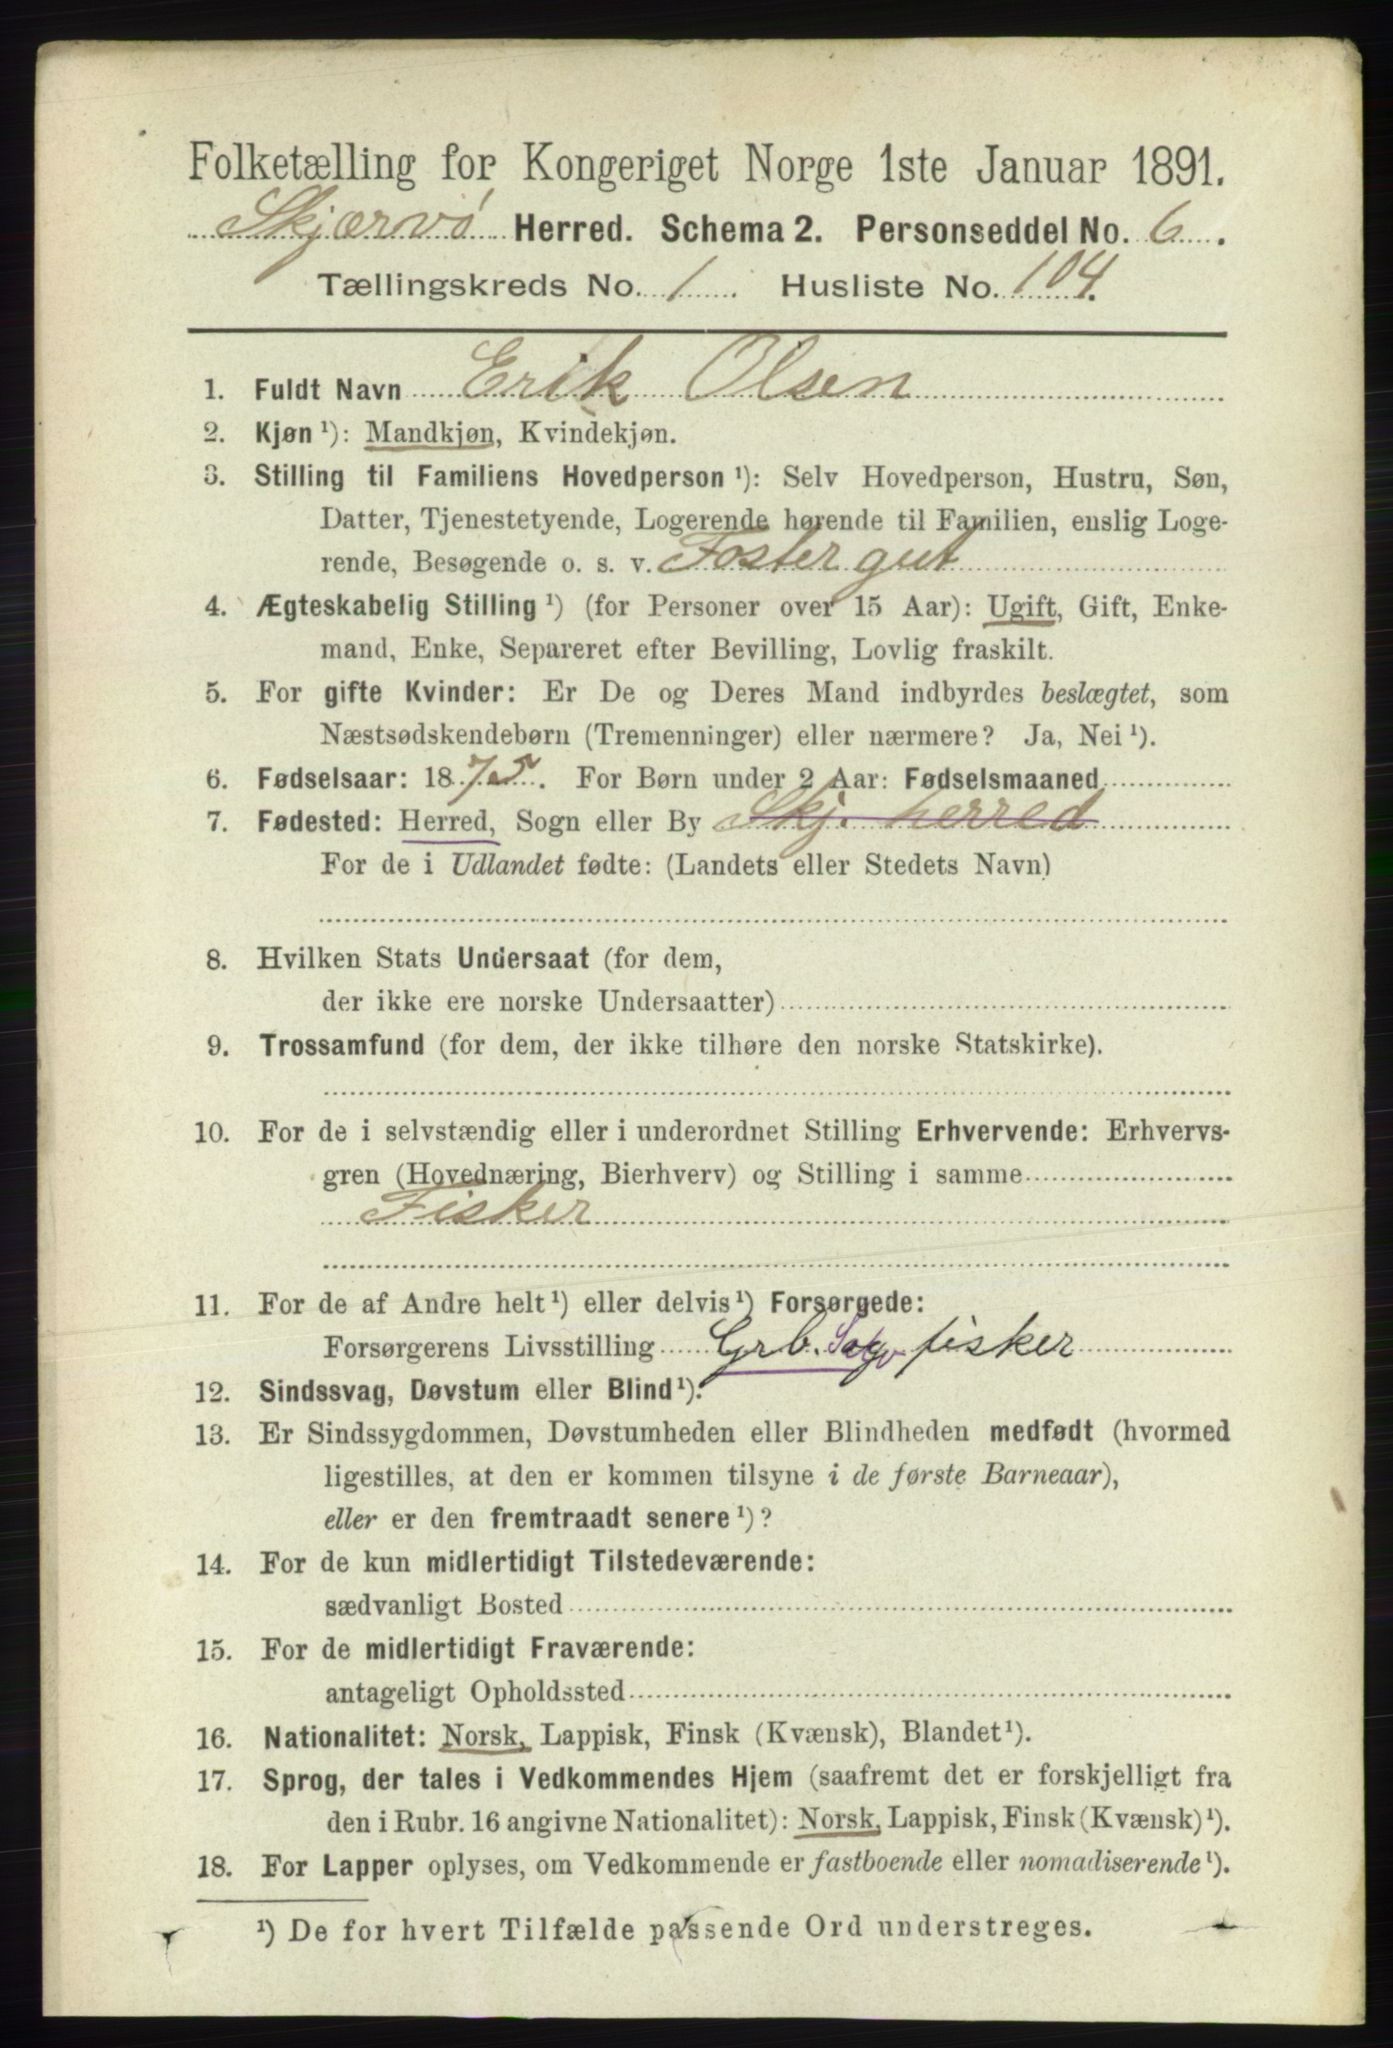 Folketælling for Kongeriget Norge 1ste Januar 1891.
Skjærvø Herred. Schema 2. Personseddel No. 6.
Tællingskreds No. 1. Husliste No. 104.
1. Fuldt Navn Erik Olsen
2. Kjøn ¹): Mandkjøn, Kvindekjøn.
3. Stilling til Familiens Hovedperson ¹): Selv Hovedperson, Hustru, Søn,
Datter, Tjenestetyende, Logerende hørende til Familien, enslig Loge-
rende, Besøgende o. s. v. Fostergut
4. Ægteskabelig Stilling ¹) (for Personer over 15 Aar): Ugift, Gift, Enke-
mand, Enke, Separeret efter Bevilling, Lovlig fraskilt.
5. For gifte Kvinder: Er De og Deres Mand indbyrdes beslægtet, som
Næstsødskendebørn (Tremenninger) eller nærmere? Ja, Nei ¹).
6. Fødselsaar: 1875. For Børn under 2 Aar: Fødselsmaaned
7. Fødested: Herred, Sogn eller By Skj. herred
For de i Udlandet fødte: (Landets eller Stedets Navn)
8. Hvilken Stats Undersaat (for dem,
der ikke ere norske Undersaatter)
9. Trossamfund (for dem, der ikke tilhøre den norske Statskirke).
10. For de i selvstændig eller i underordnet Stilling Erhvervende: Erhvervs-
gren (Hovednæring, Bierhverv) og Stilling i samme
Fisker
11. For de af Andre helt ¹) eller delvis ¹) Forsørgede:
Forsørgerens Livsstilling Grb. fisker
12. Sindssvag, Døvstum eller Blind ¹).
13. Er Sindssygdommen, Døvstumheden eller Blindheden medfødt (hvormed
ligestilles, at den er kommen tilsyne i de første Barneaar),
eller er den fremtraadt senere ¹)?
14. For de kun midlertidigt Tilstedeværende:
sædvanligt Bosted
15. For de midlertidigt Fraværende:
antageligt Opholdssted
16. Nationalitet: Norsk, Lappisk, Finsk (Kvænsk), Blandet ¹).
17. Sprog, der tales i Vedkommendes Hjem (saafremt det er forskjelligt fra
den i Rubr. 16 angivne Nationalitet): Norsk, Lappisk, Finsk (Kvænsk) ¹).
18. For Lapper oplyses, om Vedkommende er fastboende eller nomadiserende ¹).
¹) De for hvert Tilfælde passende Ord understreges.